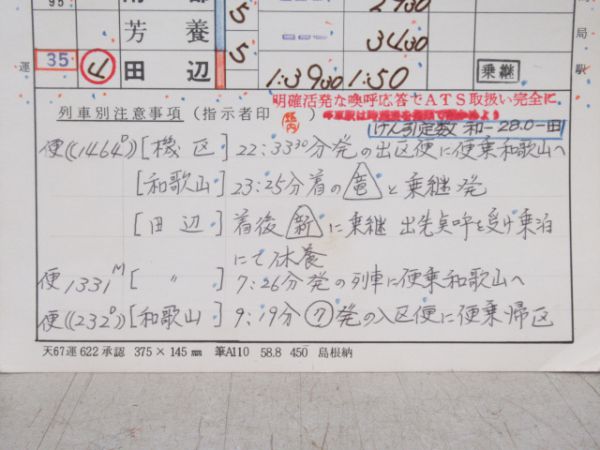 95
5 2930
芳養 5 3430
35 4 田辺 1:3930 1:50 乗継
運 局 駅
明確活発な喚呼応答でATS取扱い完全に
列車別注意事項(指示者印
けん引定数 和-28.0-田
便((1464))[機区] 22:3330分発の出区便に便乗和歌山へ
[和歌山] 23:25分着の竜と乗継発
[田辺] 着後新に乗継 出先点呼を受け乗泊
にて休養
便1331M[〃] 7:26分発の列車に便乗和歌山へ
便((232D))[和歌山] 9:19分⑦発の入区便に便乗帰区
天67運622承認 375×145㎜ 筆A110 58.8 450 島根納